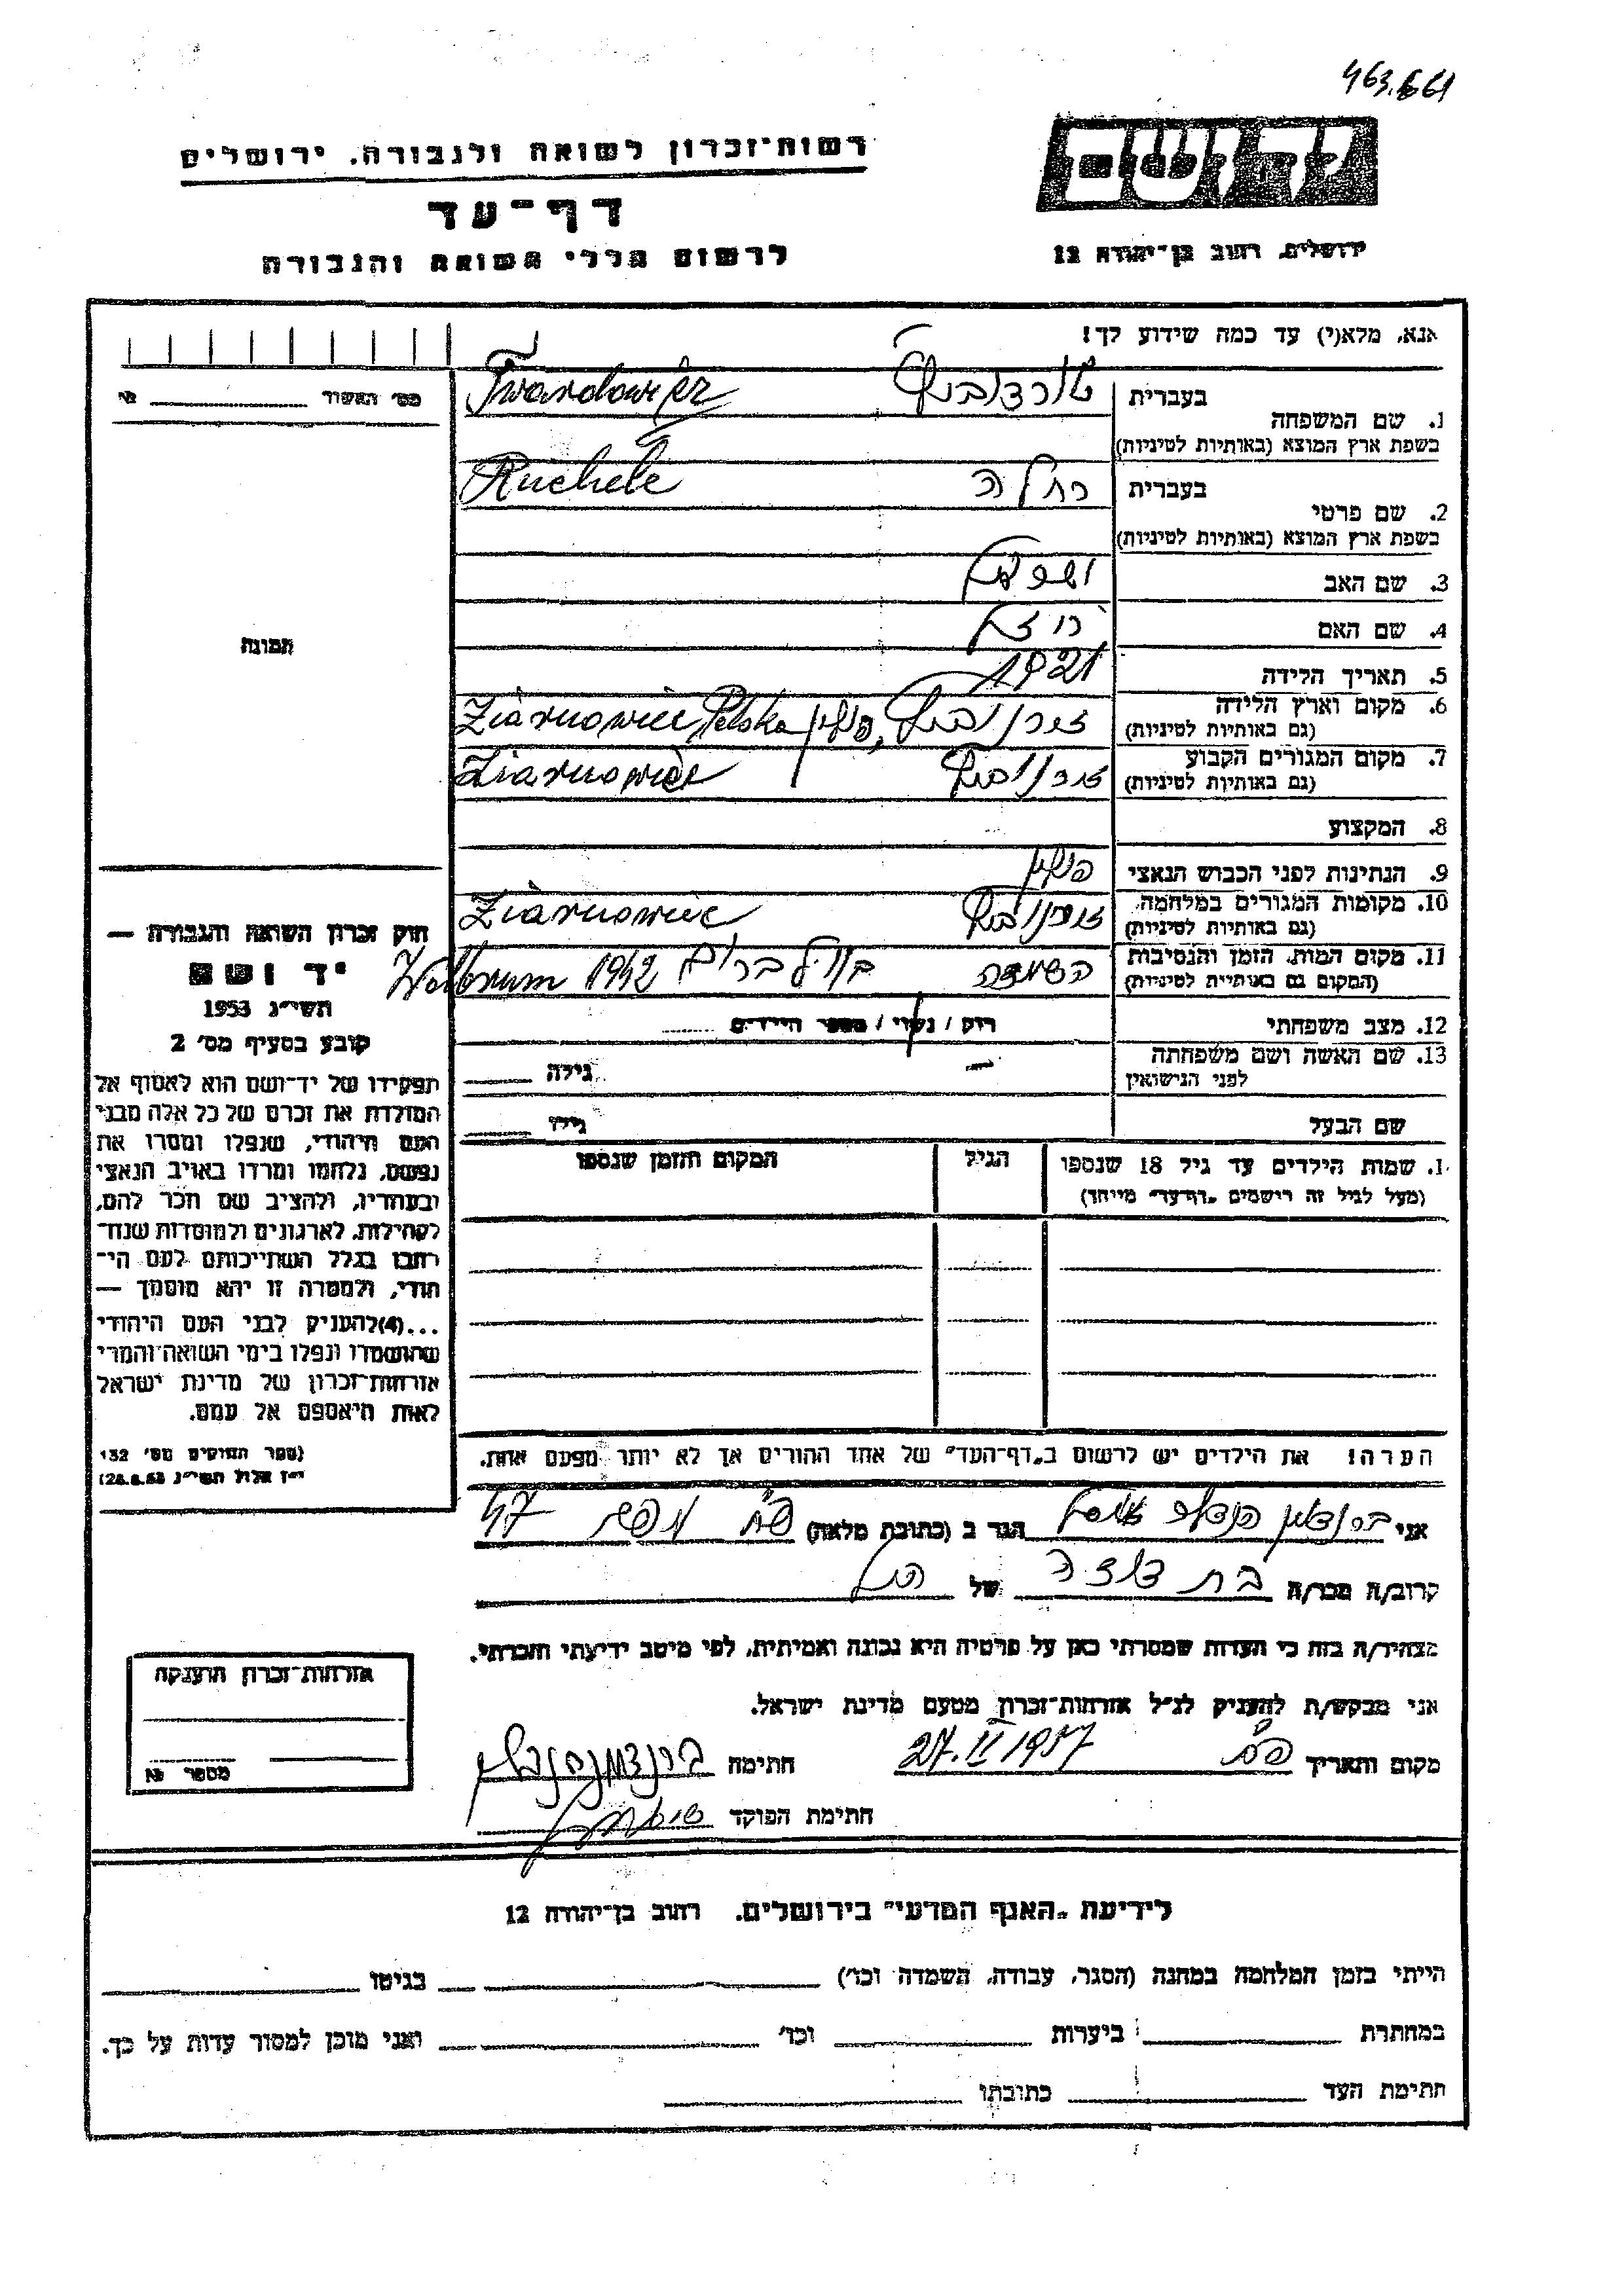 463.661
יד ושם
רשות־זכרון לשואה ולגבורה. ירושלים
דף־עד
ירושלים, רחוב בן־יהודה 12
לרשום חללי השואה והגבורה
אנא, מלא(י) עד כמה שידוע לך!
מס׳ האשור № ________
תמונה
בעברית
1. שם המשפחה
בשפת ארץ המוצא (באותיות לטיניות)
טורדוביץ Twardowicz
בעברית
2. שם פרטי
בשפת ארץ המוצא (באותיות לטיניות)
רחלה Ruchele
3. שם האב
4. שם האם רוזה
5. תאריך הלידה 1921
6. מקום וארץ הלידה
(גם באותיות לטיניות)
זירנוביץ, פולין Ziarnowiec Polska
7. מקום המגורים הקבוע
(גם באותיות לטיניות)
זרנוביץ Ziarnowiec
8. המקצוע
9. הנתינות לפני הכבוש הנאצי פולין
10. מקומות המגורים במלחמה
(גם באותיות לטיניות)
זירנוביץ Ziarnowiec
11. מקום המות, הזמן והנסיבות
(המקום גם באותיית לטיניות)
השמדה בוולברום 1942 Wolbrum
12. מצב משפחתי רוק / נשוי / מספר הילדים ........
13. שם האשה ושם משפחתה
לפני הנישואין
— גילה ____
שם הבעל גילו ____
1. שמות הילדים עד גיל 18 שנספו
(מעל לגיל זה רישמים „דף־עד” מייחד)
הגיל
המקום והזמן שנספו
חוק זכרון השואה והגבורה —
יד ושם
תשי״ג 1953
קובע בסעיף מס׳ 2
תפקידו של יד־ושם הוא לאסוף אל
המולדת את זכרם של כל אלה מבני
העם היהודי, שנפלו ומסרו את
נפשם, נלחמו ומרדו באויב הנאצי
ובעוזריו, ולהציב שם וזכר להם,
לקהילות, לארגונים ולמוסדות שנח־
רבו בגלל השתייכותם לעם הי־
הודי, ולמטרה זו יהא מוסמך —
...(4)להעניק לבני העם היהודי
שהושמדו ונפלו בימי השואה והמרי
אזרחות־זכרון של מדינת ישראל
לאות היאספם אל עמם.
(ספר החוקים מס׳ 132
י״ז אלול תשי״ג 28.8.53)
הערה! את הילדים יש לרשום ב„דף־העד” של אחד ההורים אך לא יותר מפעם אחת.
אני הגר ב (כתובת מלאה) 47
קרוב/ה מכר/ה בת דודה של הנ״ל
מצהיר/ה בזה כי העדות שמסרתי כאן על פרטיה היא נכונה ואמיתית, לפי מיטב ידיעתי והכרתי.
אני מבקש/ת להעניק לנ״ל אזרחות־זכרון מטעם מדינת ישראל.
מקום ותאריך 27.II 1957 חתימה
חתימת הפוקד
אזרחות־זכרון הוענקה
מספר №
לידיעת „האגף המדעי” בירושלים. רחוב בן־יהודה 12
הייתי בזמן המלחמה במחנה (הסגר, עבודה, השמדה וכו׳) ________ בגיטו ________
במחתרת ________ ביערות ________ וכו׳ ________ ואני מוכן למסור עדות על כך.
חתימת העד ________ כתובתו ________